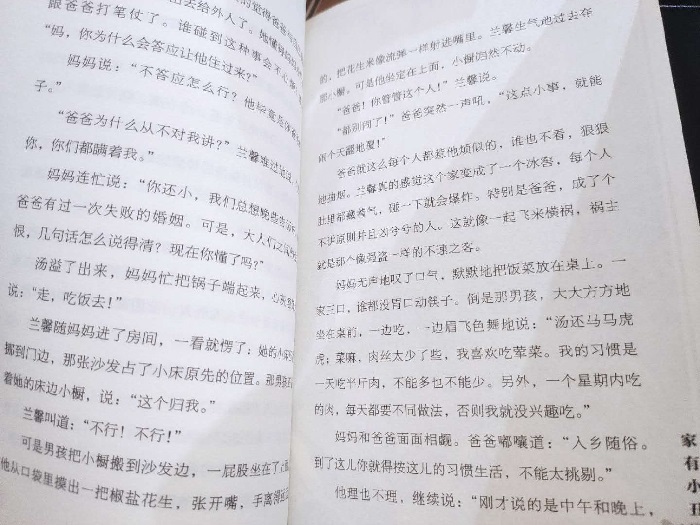 出去给外人了。她懂得
跟爸爸打笔仗了。谁碰到这种事会不心
“妈，你为什么会答应让他住过来？”
妈妈说：“不答应怎么行？他毕竟是
子。”
“爸爸为什么从不对我讲？”兰馨难过
你，你们都瞒着我。”
妈妈连忙说：“你还小，我们总想晚些告诉
爸爸有过一次失败的婚姻。可是，大人们之间
恨，几句话怎么说得清？现在你懂了吗？”
汤溢了出来，妈妈忙把锅子端起来，心
说：“走，吃饭去！”
兰馨随妈妈进了房间，一看就愣了：她的小床
挪到门边，那张沙发占了小床原先的位置。那男孩
着她的床边小橱，说：“这个归我。”
兰馨叫道：“不行！不行！”
可是男孩把小橱搬到沙发边，一屁股坐在了
他从口袋里摸出一把椒盐花生，张开嘴，手离得
的，把花生米像流弹一样射进嘴里。兰馨生气地过去夺
那小橱。可是他坐定在上面，小橱岿然不动。
“爸爸！你管管这个人！”兰馨说。
“都别闹了！”爸爸突然一声吼，“这点小事，就能
闹个天翻地覆！”
爸爸就这么每个人都惹他烦似的，谁也不看，狠狠
地抽烟。兰馨真的感觉这个家变成了一个冰窖，每个人
肚里都藏着气，碰一下就会爆炸。特别是爸爸，成了个
不讲原则并且凶兮兮的人。这就像一起飞来横祸，祸主
就是那个像强盗一样的不速之客。
妈妈无声地叹了口气，默默地把饭菜放在桌上。一
家三口，谁都没胃口动筷子。倒是那男孩，大大方方地
坐在桌前，一边吃，一边眉飞色舞地说：“汤还马马虎
虎；菜嘛，肉丝太少了些，我喜欢吃荤菜。我的习惯是
一天吃半斤肉，不能多也不能少。另外，一个星期内吃
的肉，每天都要不同做法，否则我就没兴趣吃。”
妈妈和爸爸面面相觑。爸爸嘟囔道：“入乡随俗。
到了这儿你就得按这儿的习惯生活，不能太挑剔。”
他理也不理，继续说：“刚才说的是中午和晚上，
家有小